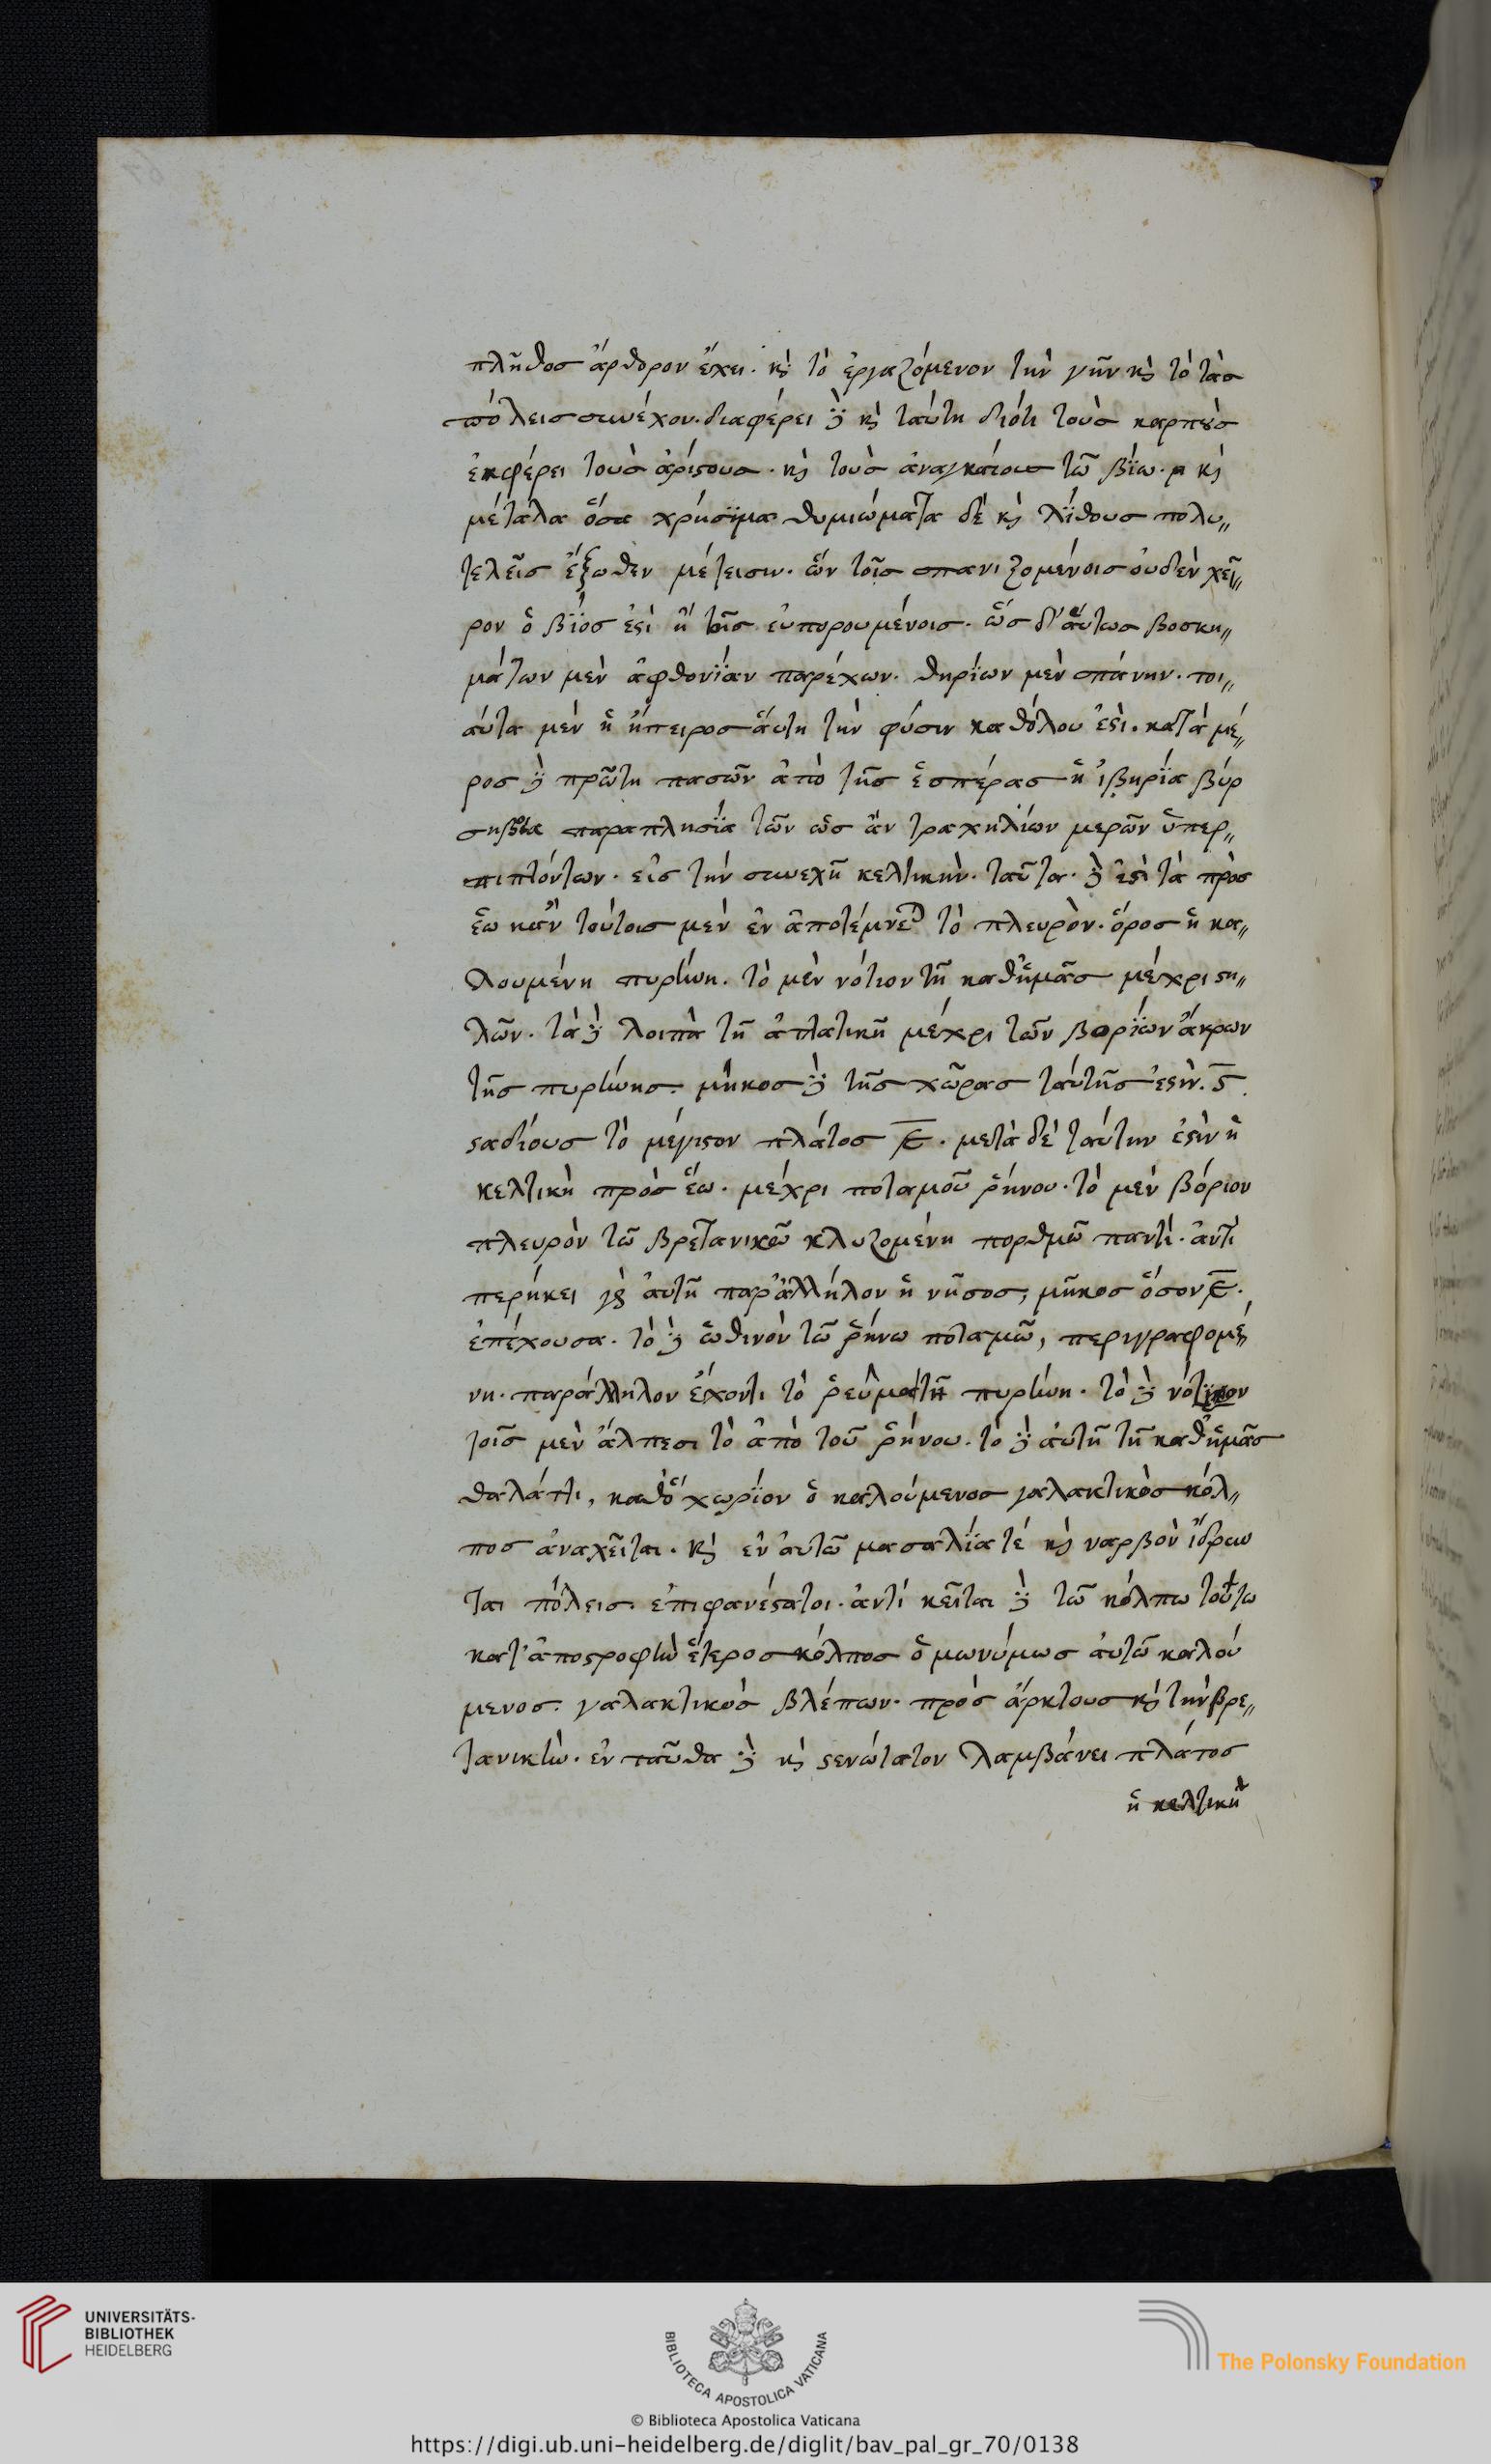 πλῆθος ἄρθρον ἔχει. κ̀ τὸ ἐργαζόμενον τὴν γῆν κ̀ τὸ τὰσ
πόλεισ συνέχον. διαφέρει δὲ κ̀ ταύτη διότι τοὺσ καρποὺσ
ἐκφέρει τοὺσ ἀρίστουσ. κ̀ τοὺσ ἀναγκαίουσ τῶ βίω. κ̀
μέταλα ὅσα χρήσϊμα θυμιώματα δὲ κ̀ λΐθουσ πολυ〃
τελεῖσ ἔξωθεν μέτεισιν. ὧν τοῖσ σπανιζομένοισ οὐδὲν χεῖ〃
ρον ὁ βΐοσ ἐστὶ ἢ τοῖσ εὐπορουμένοισ. ὣσ δ'αὔτωσ βοσκη〃
μάτων μὲν ἀφθονΐαν παρέχων. θηρΐων μὲν σπάνην. τοι〃
αύτα μὲν ἡ ἤπειροσ ἅυτη τὴν φύσιν καθόλου ἐστὶ. κατὰ μέ〃
ροσ δὲ πρῶτη πασῶν ἀπὸ τῆσ ἑσπέρασ ἡ ἰβηρΐα βύρ
σηβοέα παραπλησΐα τῶν ὡσ ἂν τραχηλΐων μερῶν ὑπερ〃
πιπτόντων. εἰσ τὴν συνεχῆ κελτικὴν. ταῦτα. δὲ ἐστὶ τὰ πρὸσ
ἕω κἂν τούτοισ μὲν ἐν ἀποτέμνε τὸ πλευρὸν. ὄροσ ἡ κα〃
λουμένη πυρήνη. τὸ μὲν νότιον τῆ καθ'ἡμᾶσ μέχρι στη〃
λῶν. τὰ δὲ λοιπὰ τῆ ἀτλατικῆ μέχρι τῶν βορΐων ἄκρων
τῆσ πυρήνησ. μῆκοσ δὲ τῆσ χῶρασ ταύτῆσ ἐστὶν. ϛ̅
σταδίουσ τὸ μέγιστον πλάτοσ ε̅. μετὰ δὲ ταύτην ἐστὶν ἡ
κελτικὴ πρὸσ ἕω. μέχρι ποταμοῦ ῥήνου. τὸ μὲν βόριον
πλευρὸν τῶ βρετανικῶ κλυζομένη πορθμῶ παντὶ. ἀντὶ
περήκει γὰρ ἀυτῆ παρ'ἀλλήλον ἡ νῆσοσ, μῆκοσ ὅσον ε̅.
ἐπέχουσα. τὸ δὲ ἑωθινὸν τῶ ῥήνω ποταμῶ, περιγραφομέ〃
νη. παράλληλον ἔχοντι τὸ ῥεῦμα τῆ πυρήνη. τὸ δὲ νότιον
τοῖσ μὲν ἄλπεσι τὸ ἀπὸ τοῦ ῥήνου. τὸ δὲ ἀυτῆ τῆ καθ'ἡμᾶσ
θαλάττι, καθ'ὃ χωρΐον ὁ καλούμενοσ γαλακτικὸσ κόλ〃
ποσ ἀναχεῖται. κ̀ ἐν ἀυτῶ μασαλΐα τέ κ̀ ναρβὸν ἵδρυν
ται πόλεισ ἐπιφανέσταται. ἀντὶ κεῖται δὲ τῶ κόλπω τούτω
κατ'ἀποστροφὴν ἕτεροσ κόλποσ ὁμωνύμωσ ἀυτῶ καλού
μενοσ. γαλακτικὸσ βλέπων. πρὸσ ἄρκτουσ κ̀ τὴν βρε〃
τανικὴν. ἐν ταῦθα δὲ κ̀ στενώτατον λαμβάνει πλάτοσ
ἡ κελτικὴ
UNIVERSITÄTS-
BIBLIOTHEK
HEIDELBERG
BIBLIOTECA APOSTOLICA VATICANA
The Polonsky Foundation
© Biblioteca Apostolica Vaticana
https://digi.ub.uni-heidelberg.de/diglit/bav_pal_gr_70/0138